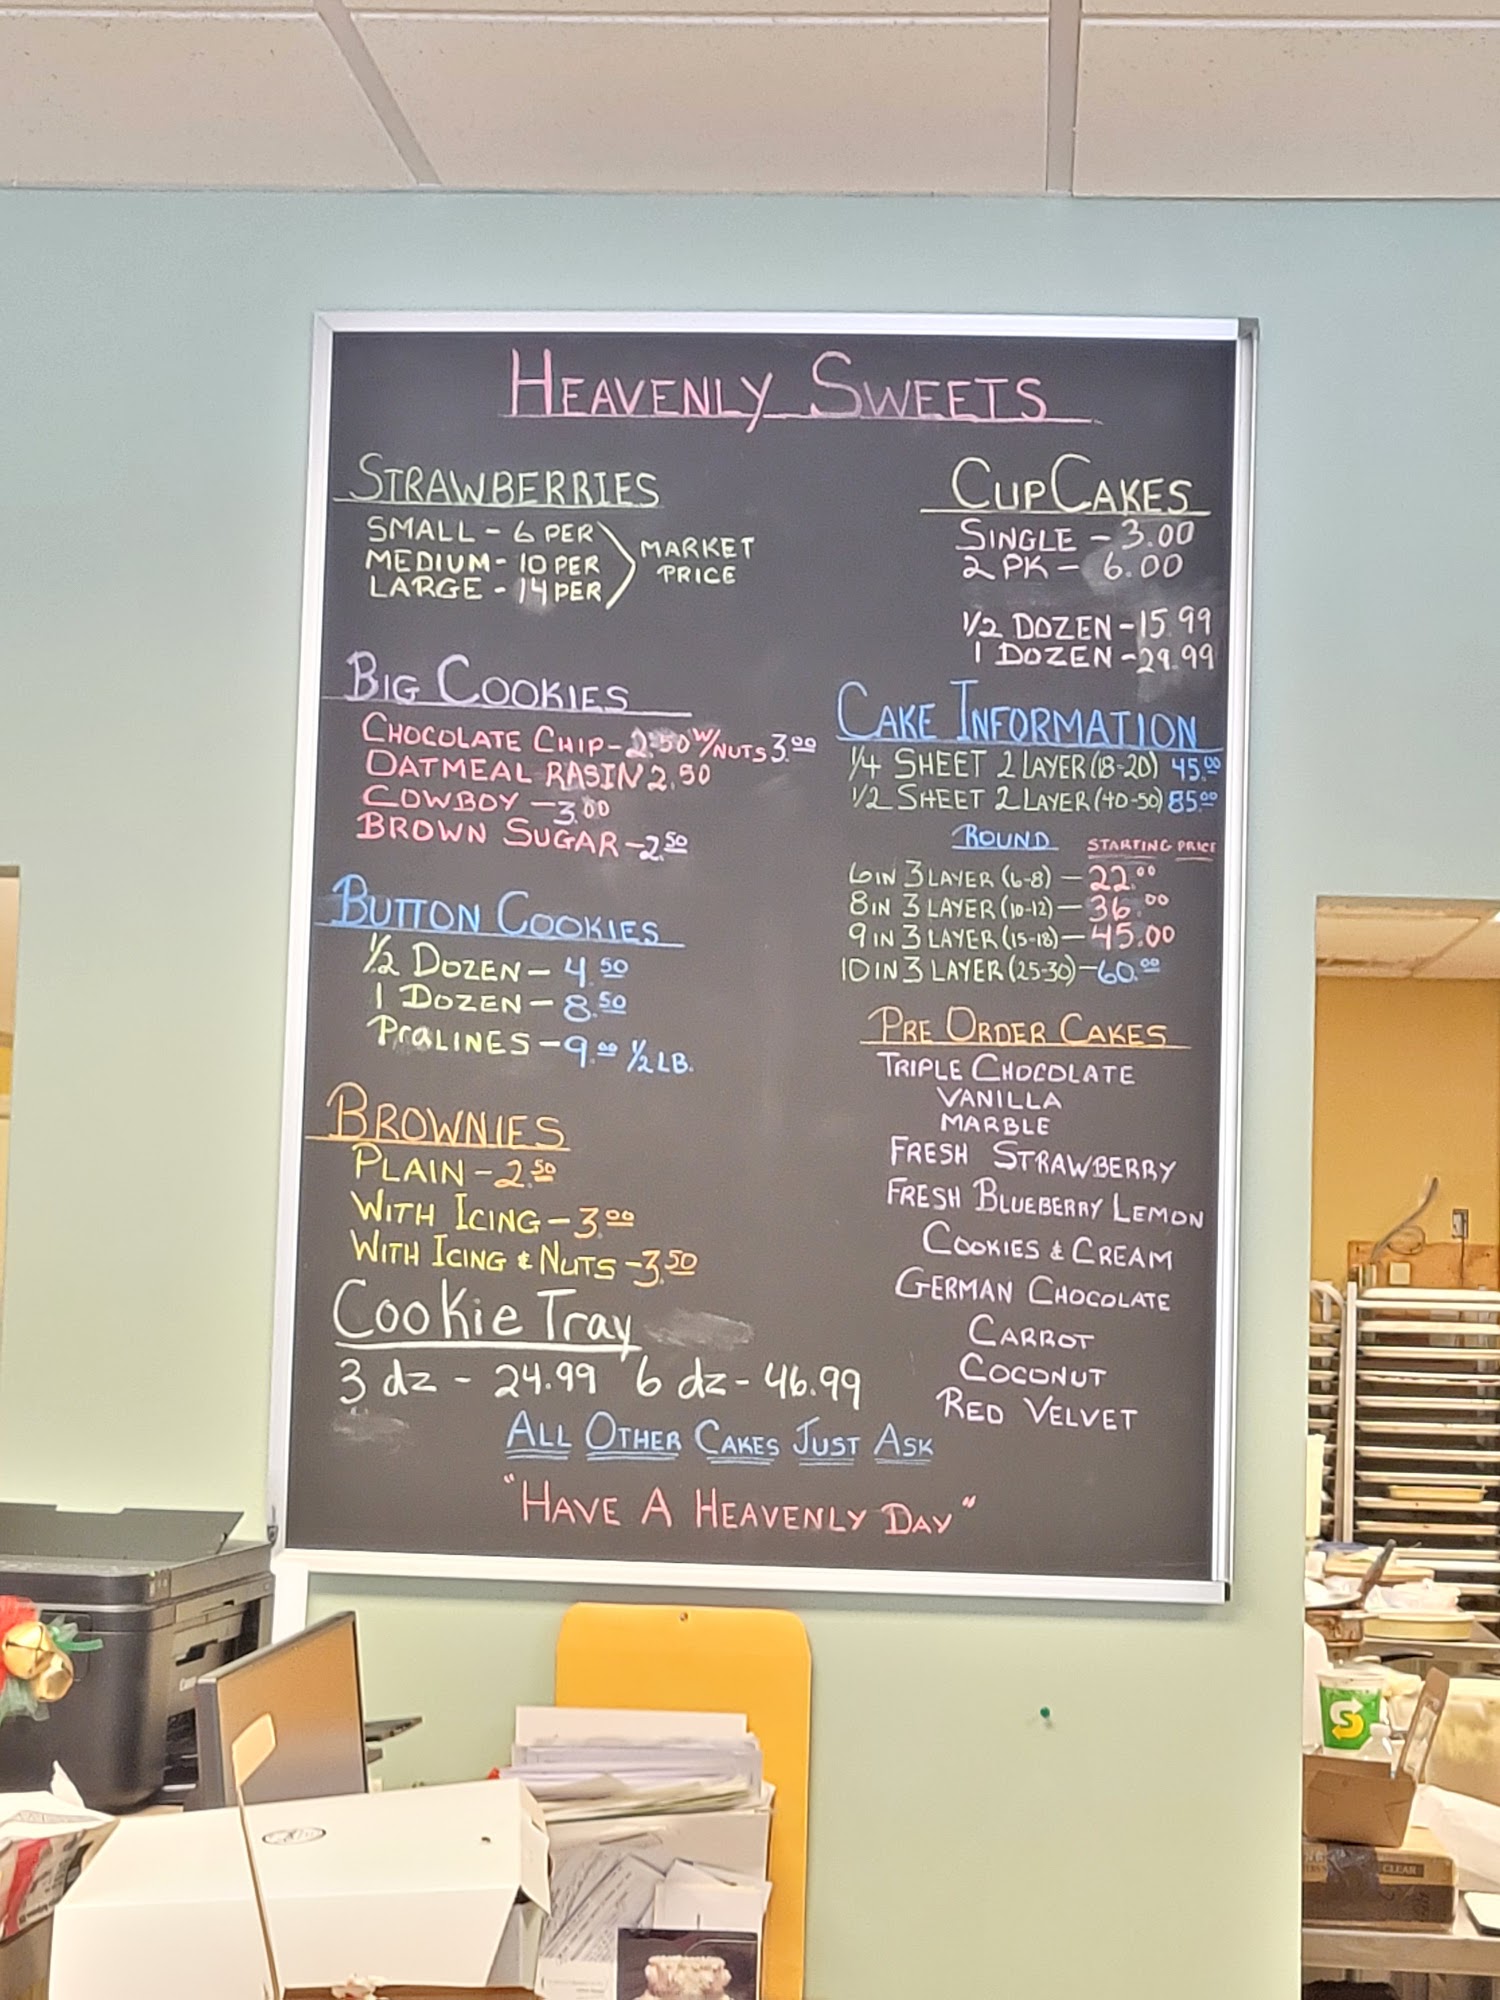 HEAVENLY SWEETS
STRAWBERRIES
SMALL - 6 PER
MEDIUM - 10 PER
LARGE - 14 PER
MARKET
PRICE
BIG COOKIES
CHOCOLATE CHIP - 2.50 W/NUTS 3.00
OATMEAL RASIN 2.50
COWBOY - 3.00
BROWN SUGAR - 2.50
BUTTON COOKIES
1/2 DOZEN - 4.50
1 DOZEN - 8.50
PRaLINES - 9.00 1/2 LB.
BROWNIES
PLAIN - 2.50
WITH ICING - 3.00
WITH ICING & NUTS - 3.50
Cookie Tray
3 dz - 24.99 6 dz - 46.99
CUPCAKES
SINGLE - 3.00
2 PK - 6.00
1/2 DOZEN - 15.99
1 DOZEN - 29.99
CAKE INFORMATION
1/4 SHEET 2 LAYER (18-20) 45.00
1/2 SHEET 2 LAYER (40-50) 85.00
ROUND STARTING PRICE
6 IN 3 LAYER (6-8) - 22.00
8 IN 3 LAYER (10-12) - 36.00
9 IN 3 LAYER (15-18) - 45.00
10 IN 3 LAYER (25-30) - 60.00
PRE ORDER CAKES
TRIPLE CHOCOLATE
VANILLA
MARBLE
FRESH STRAWBERRY
FRESH BLUEBERRY LEMON
COOKIES & CREAM
GERMAN CHOCOLATE
CARROT
COCONUT
RED VELVET
ALL OTHER CAKES JUST ASK
"HAVE A HEAVENLY DAY"
CLEAR